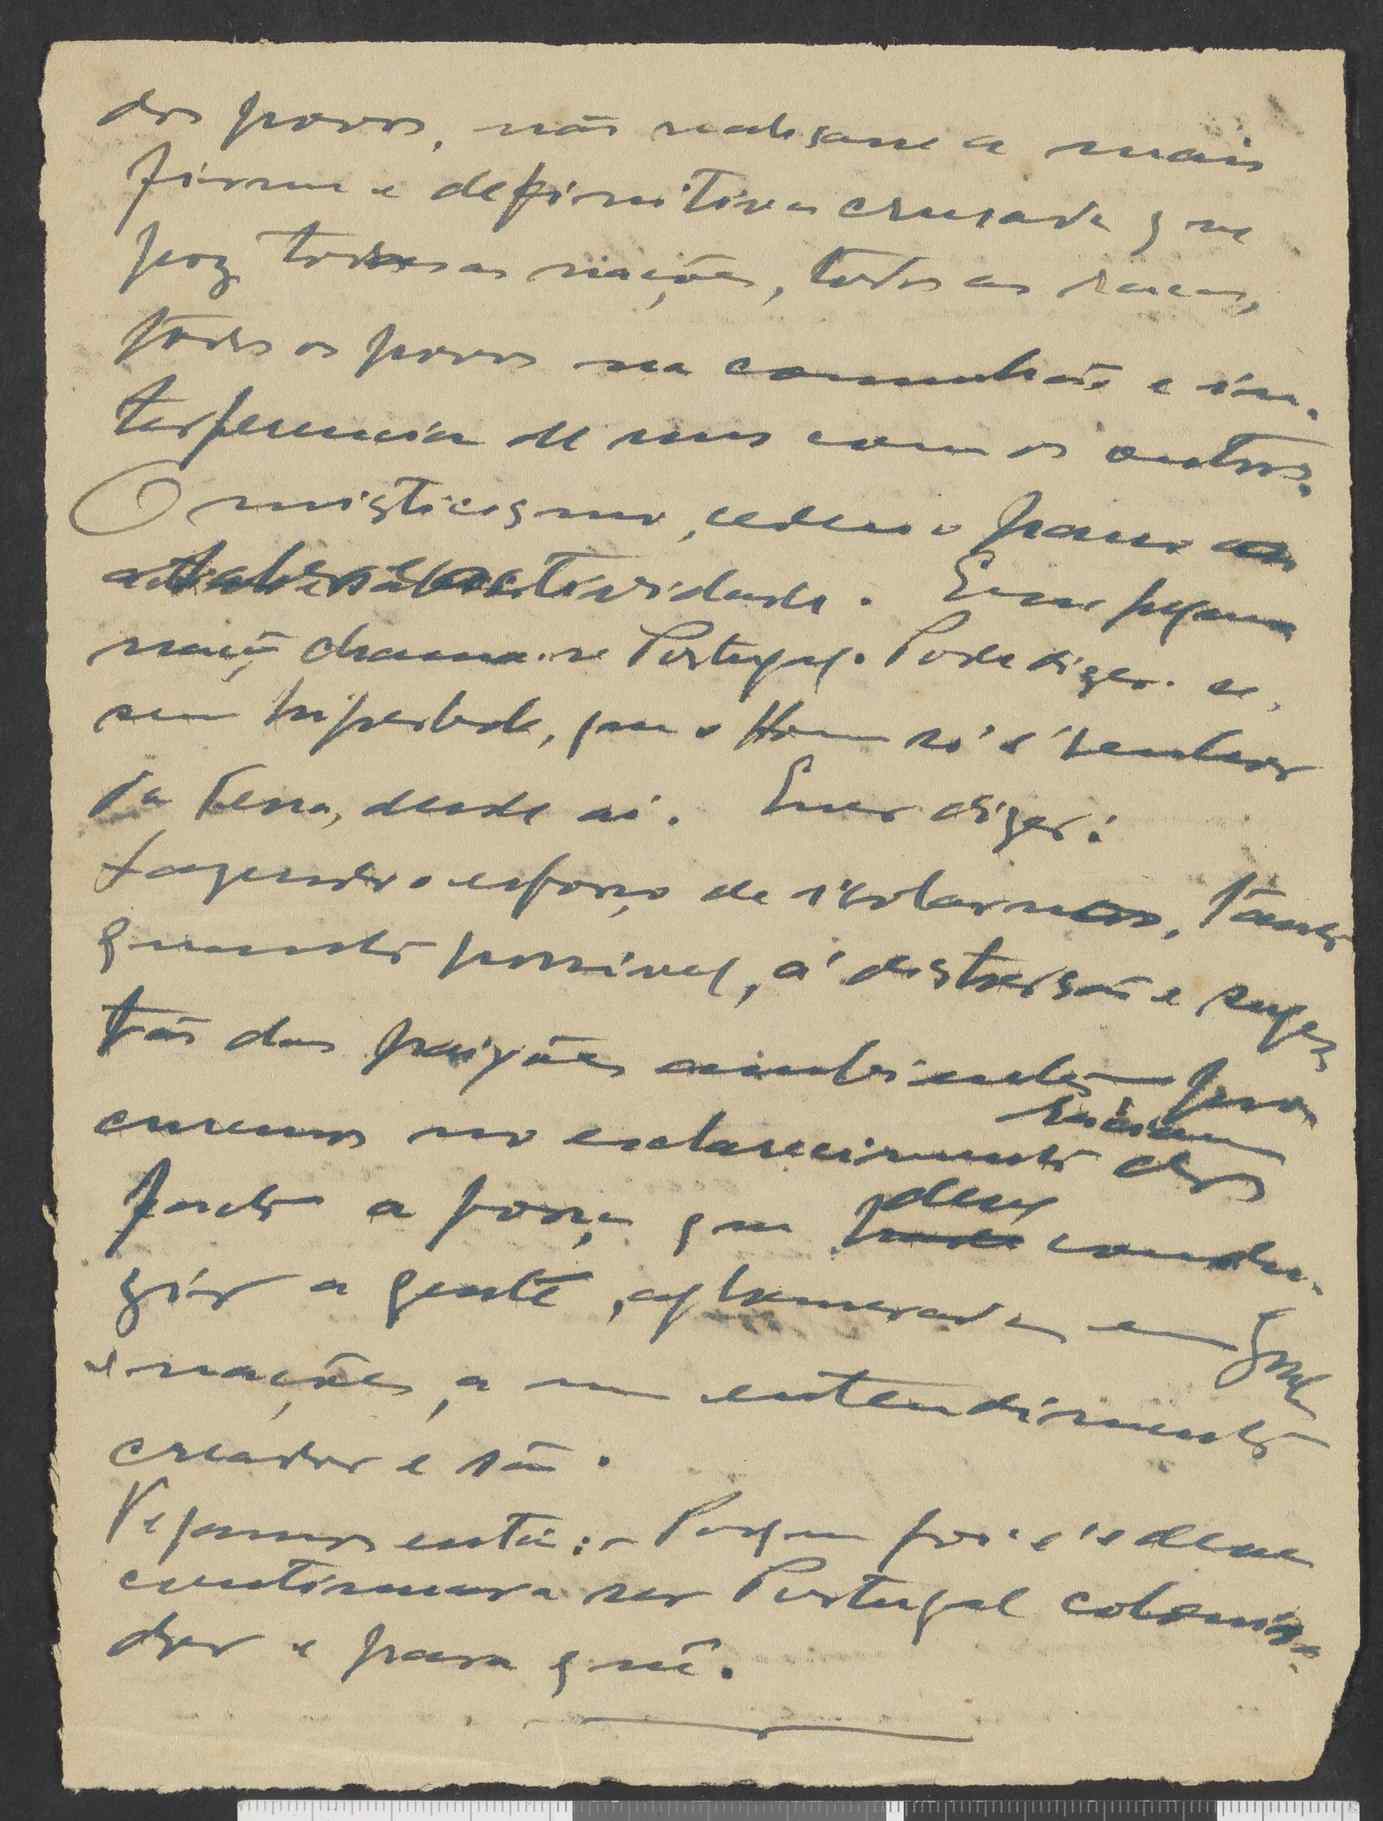 dos povos, não realisasse a mais
firme e definitiva crusada que
poz todas as nações, todas as raças,
todos os povos na comunhão e in-
terferencia de uns com os outros.
O misticismo, cedeu o passo
actividade. Essa pequena
nação chama-se Portugal. Pode dizer-se,
sem hiperbole, que o Homem só é senhor
da Terra, desde aí. Quer dizer:
Fazendo o esforço de isolarmos, tanto
quanto possivel, á distorsão e suges
tão das paixões ambientes — pro
curemos no esclarecimento dos
factos a força que deve condu-
zir a gente, aglomerada em
e nações, a um entendimento
creador e são.
Vejamos então: – Porque foi e é e deve
continuar a ser Portugal colonisa-
dor e para quê.